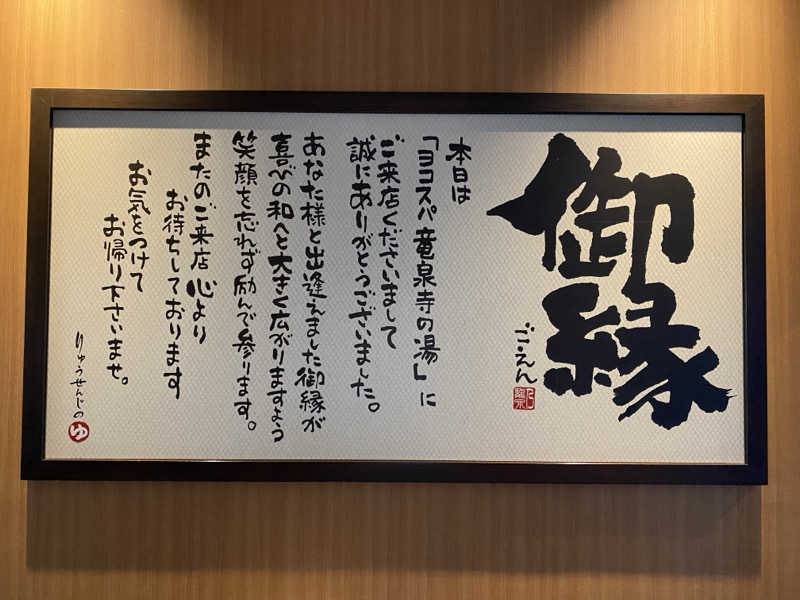 御縁
ご・えん
本日は
「ヨコスパ竜泉寺の湯」に
ご来店くださいまして
誠にありがとうございました。
あなた様と出逢えました御縁が
喜びの和へと大きく広がりますよう
笑顔を忘れず励んで参ります。
またのご来店 心より
お待ちしております
お気をつけて
お帰り下さいませ。
りゅうせんじの
ゆ